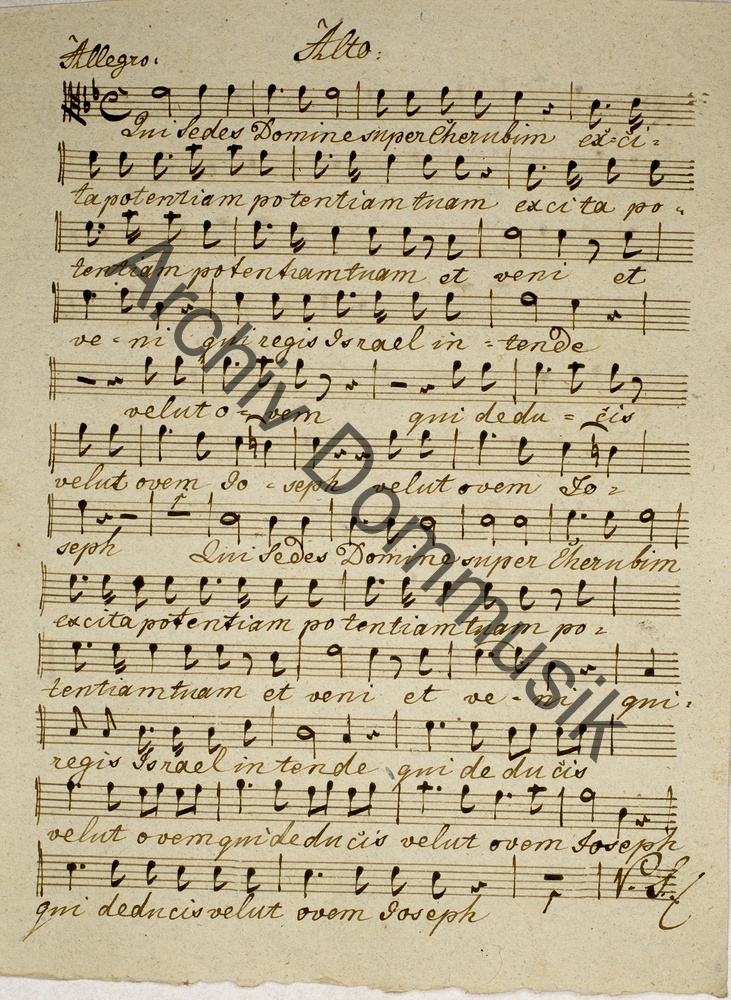 Allegro.
Alto:
Qui Sedes Domine super Cherubim ex=ci=
ta potentiam potentiam tuam excita po=
tentiam potentiam tuam et veni et
ve=ni qui regis Israel in=tende
velut o=vem qui dedu=cis
velut ovem Jo=seph velut ovem Jo=
seph Qui Sedes Domine super Cherubim
excita potentiam potentiam tuam po=
tentiam tuam et veni et ve=ni qui=
regis Israel intende qui deducis
velut ovem qui deducis velut ovem Joseph
V. S.
qui deducis velut ovem Joseph
Archiv Dommusik